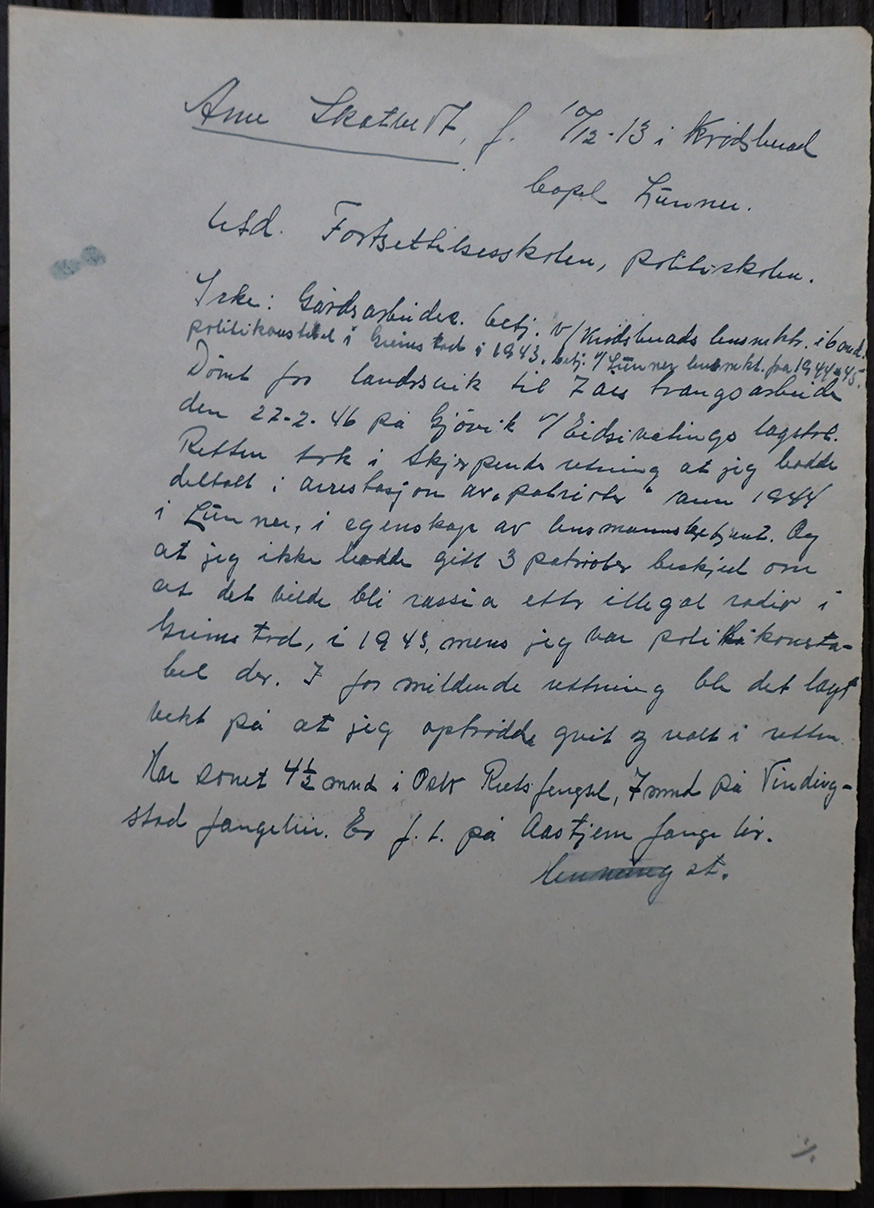 Arne Skatvedt, f. 10/12-13 i Krødsherad
bopel Lunner.
Utd. Fortsettelsesskolen, politiskolen.
Yrke: Gårdsarbeider. betj. v/Krødsherads lensmktr. i 6 mnd.
politikonstabel i Grimstad i 1943, betj. v/Lunner lensmkt. fra 1944-45.
Dømt for landssvik til 7 aars tvangsarbeide
den 22-2-46 på Gjøvik v/Eidsivatings lagstol.
Retten tok i skjerpende retning at jeg hadde
deltatt i arrestasjon av "patrioter" 1944
i Lunner, i egenskap av lensmannsbetjent. Og
at jeg ikke hadde gitt 3 patrioter beskjed om
at det vilde bli rassia etter illegal radio i
Grimstad, i 1943, mens jeg var politikonsta-
bel der. I formildende retning ble det lagt
vekt på at jeg optrådde greit og reelt i retten.
Har sonet 4½ mnd i Oslo Kretsfengsel, 7 mnd på Vinding-
stad fangeleir. Er f.t. på fangeleir.